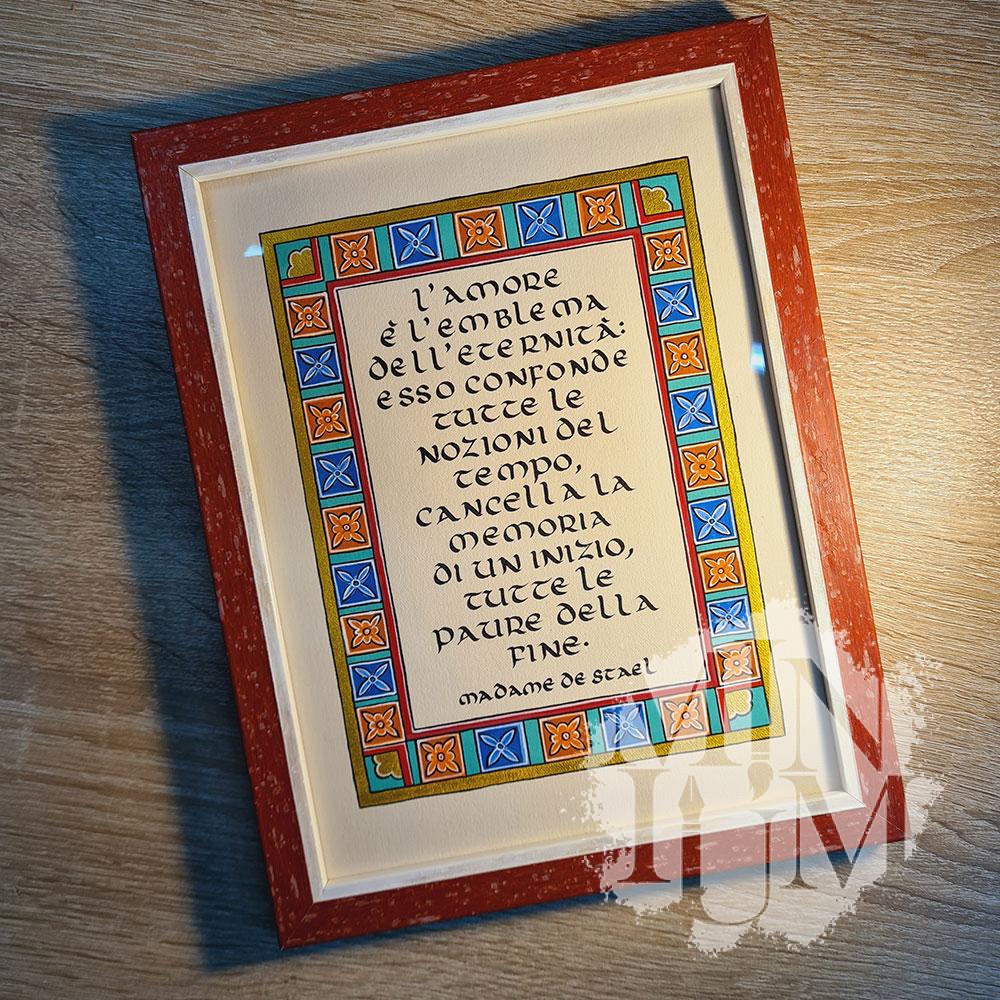 L'AMORE
È L'EMBLEMA
DELL'ETERNITÀ:
ESSO CONFONDE
TUTTE LE
NOZIONI DEL
TEMPO,
CANCELLA LA
MEMORIA
DI UN INIZIO,
TUTTE LE
PAURE DELLA
FINE.
MADAME DE STAEL
MIN
IUM